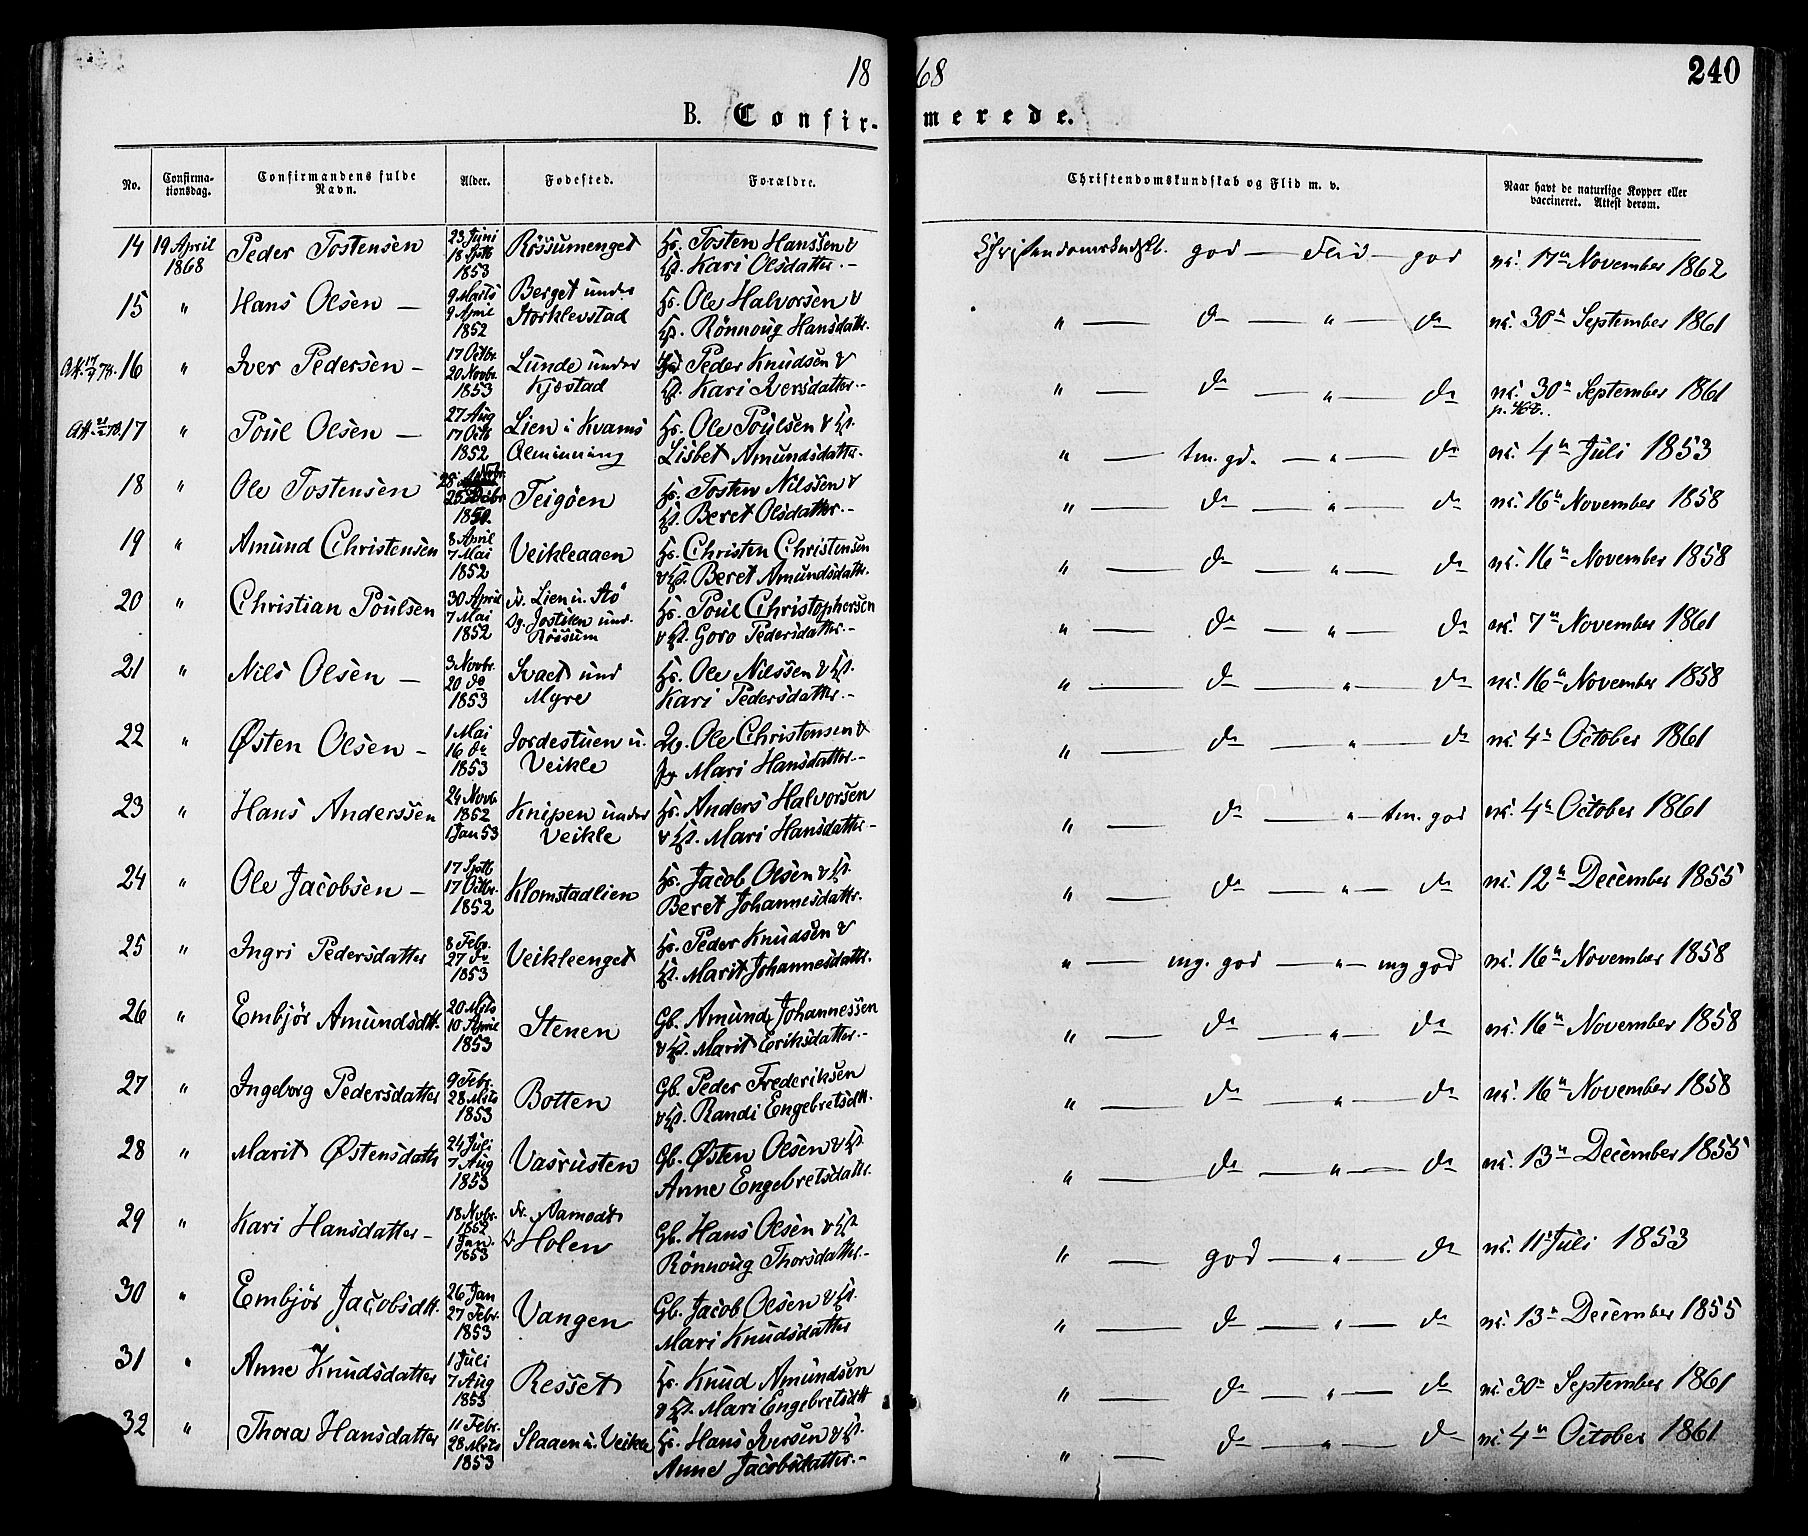 18 68
240
B. Confir- merede.
No. Confirma-tionsdag. Confirmandens fulde Navn. Alder. Fødested. Forældre. Christendomskundskab og Flid m. v. Naar havt de naturlige Kopper eller vaccineret. Attest derom.
14 19 April 1868 Peder Tostensen 23 Juni 18 Sptb 1853 Rössumenget Hs. Tosten Hanssen & Kari Olsdatter.- god — Flid — god nr. 17 November 1862
15 " Hans Olsen — 9 Marts 9 April 1852 Berget under Storklevstad Hs. Ole Halvorsen & Rönnoug Hansdatr. " — do — " — do nr. 30 September 1861
Att. 17/9 78. 16 " Iver Pedersen — 17 Octbr. 20 Novbr. 1853 Lunde under Kjöstad Peder Knudsen & Kari Iversdatter.- " — do — " — do nr. 30 September 1861
17 " Poul Olsen — 27 Aug 17 Octb 1852 Lien i Kvams Alminning Hs. Ole Poulsen & Lisbet Amundsdatter.- " — tm. gd. — " — do nr. 4 Juli 1853
18 " Ole Tostensen 28 Novbr. 25 Decbr 1850. Teigöen Hs. Tosten Nilssen & Beret Olsdatter.- " — do — " — do nr. 16 November 1858
19 " Amund Christensen 8 April 7 Mai 1852 Veikleaaen Hs. Christen Christensen & Beret Amundsdatr. " — do — " — do nr. 16 November 1858
20 " Christian Poulsen 30 April 7 Mai 1852 Lien u. Stö Jostilen und. Rössum Hs. Poul Christophersen & Goro Pedersdatter.- " — do — " — do nr. 7 November 1861
21 " Nils Olsen — 3 Novbr. 20 do 1853 Svaet und Myre Hs. Ole Nilssen & Kari Pedersdatter.- " — do — " — do nr. 16 November 1858
22 " Østen Olsen — 1 Mai 16 do 1853 Jordestuen u. Veikle Ole Christensen & Mari Hansdatter.- " — do — " — do nr. 4 October 1861
23 " Hans Anderssen 24 Novb 1852 1 Jan 53 Knipen under Veikle Hs. Anders Halvorsen & Mari Hansdatter — " — do — " — tm. god nr. 4 October 1861
24 " Ole Jacobsen — 17 Sptb 17 Octbr. 1852 Klomstadlien Hs. Jacob Olsen & Beret Johannesdatter. " — do — " — do nr. 12 December 1855
25 " Ingri Pedersdatter 8 Febr. 27 do 1853 Veikleenget Hs. Peder Knudsen & Marit Johannesdatter. " — mg. god — " — mg god nr. 16 November 1858
26 " Embjör Amundsdtt. 20 Mrts 10 April 1853 Stenen Gb. Amund Johannessen & Marit Eriksdatter.- " — do — " — do nr. 16 November 1858
27 " Ingeborg Pedersdatter 9 Febr. 28 Mrts 1853 Botten Gb. Peder Frederiksen & Randi Engebretsdtt. " — do — " — do nr. 16 November 1858
28 " Marit Østensdatter 24 Juli 7 Aug 1853 Vasrusten Gb. Østen Olsen & Anne Engebretsdatr. " — do — " — do nr. 13 December 1855
29 " Kari Hansdatter — 18 Novbr. 1852 1 Jan. 1853 Aamodt Holen Gb. Hans Olsen & Rönnoug Thorsdatter.- " — god — " — do nr. 11 Juli 1853
30 " Embjör Jacobsdtt. 26 Jan 27 Febr. 1853 Vangen Gb. Jacob Olsen & Mari Knudsdatter " — do — " — do nr. 13 December 1855
31 " Anne Knudsdatter 1 Juli 7 Aug 1853 Resset Hs. Knud Amundsen & Mari Engebretsdtt " — do — " — do nr. 30 September 1861
32 " Thora Hansdatter 11 Febr. 28 Mrts 1853 Slaaen u. Veikle Hs. Hans Iversen & Anne Jacobsdatter.- " — do — " — do nr. 4 October 1861